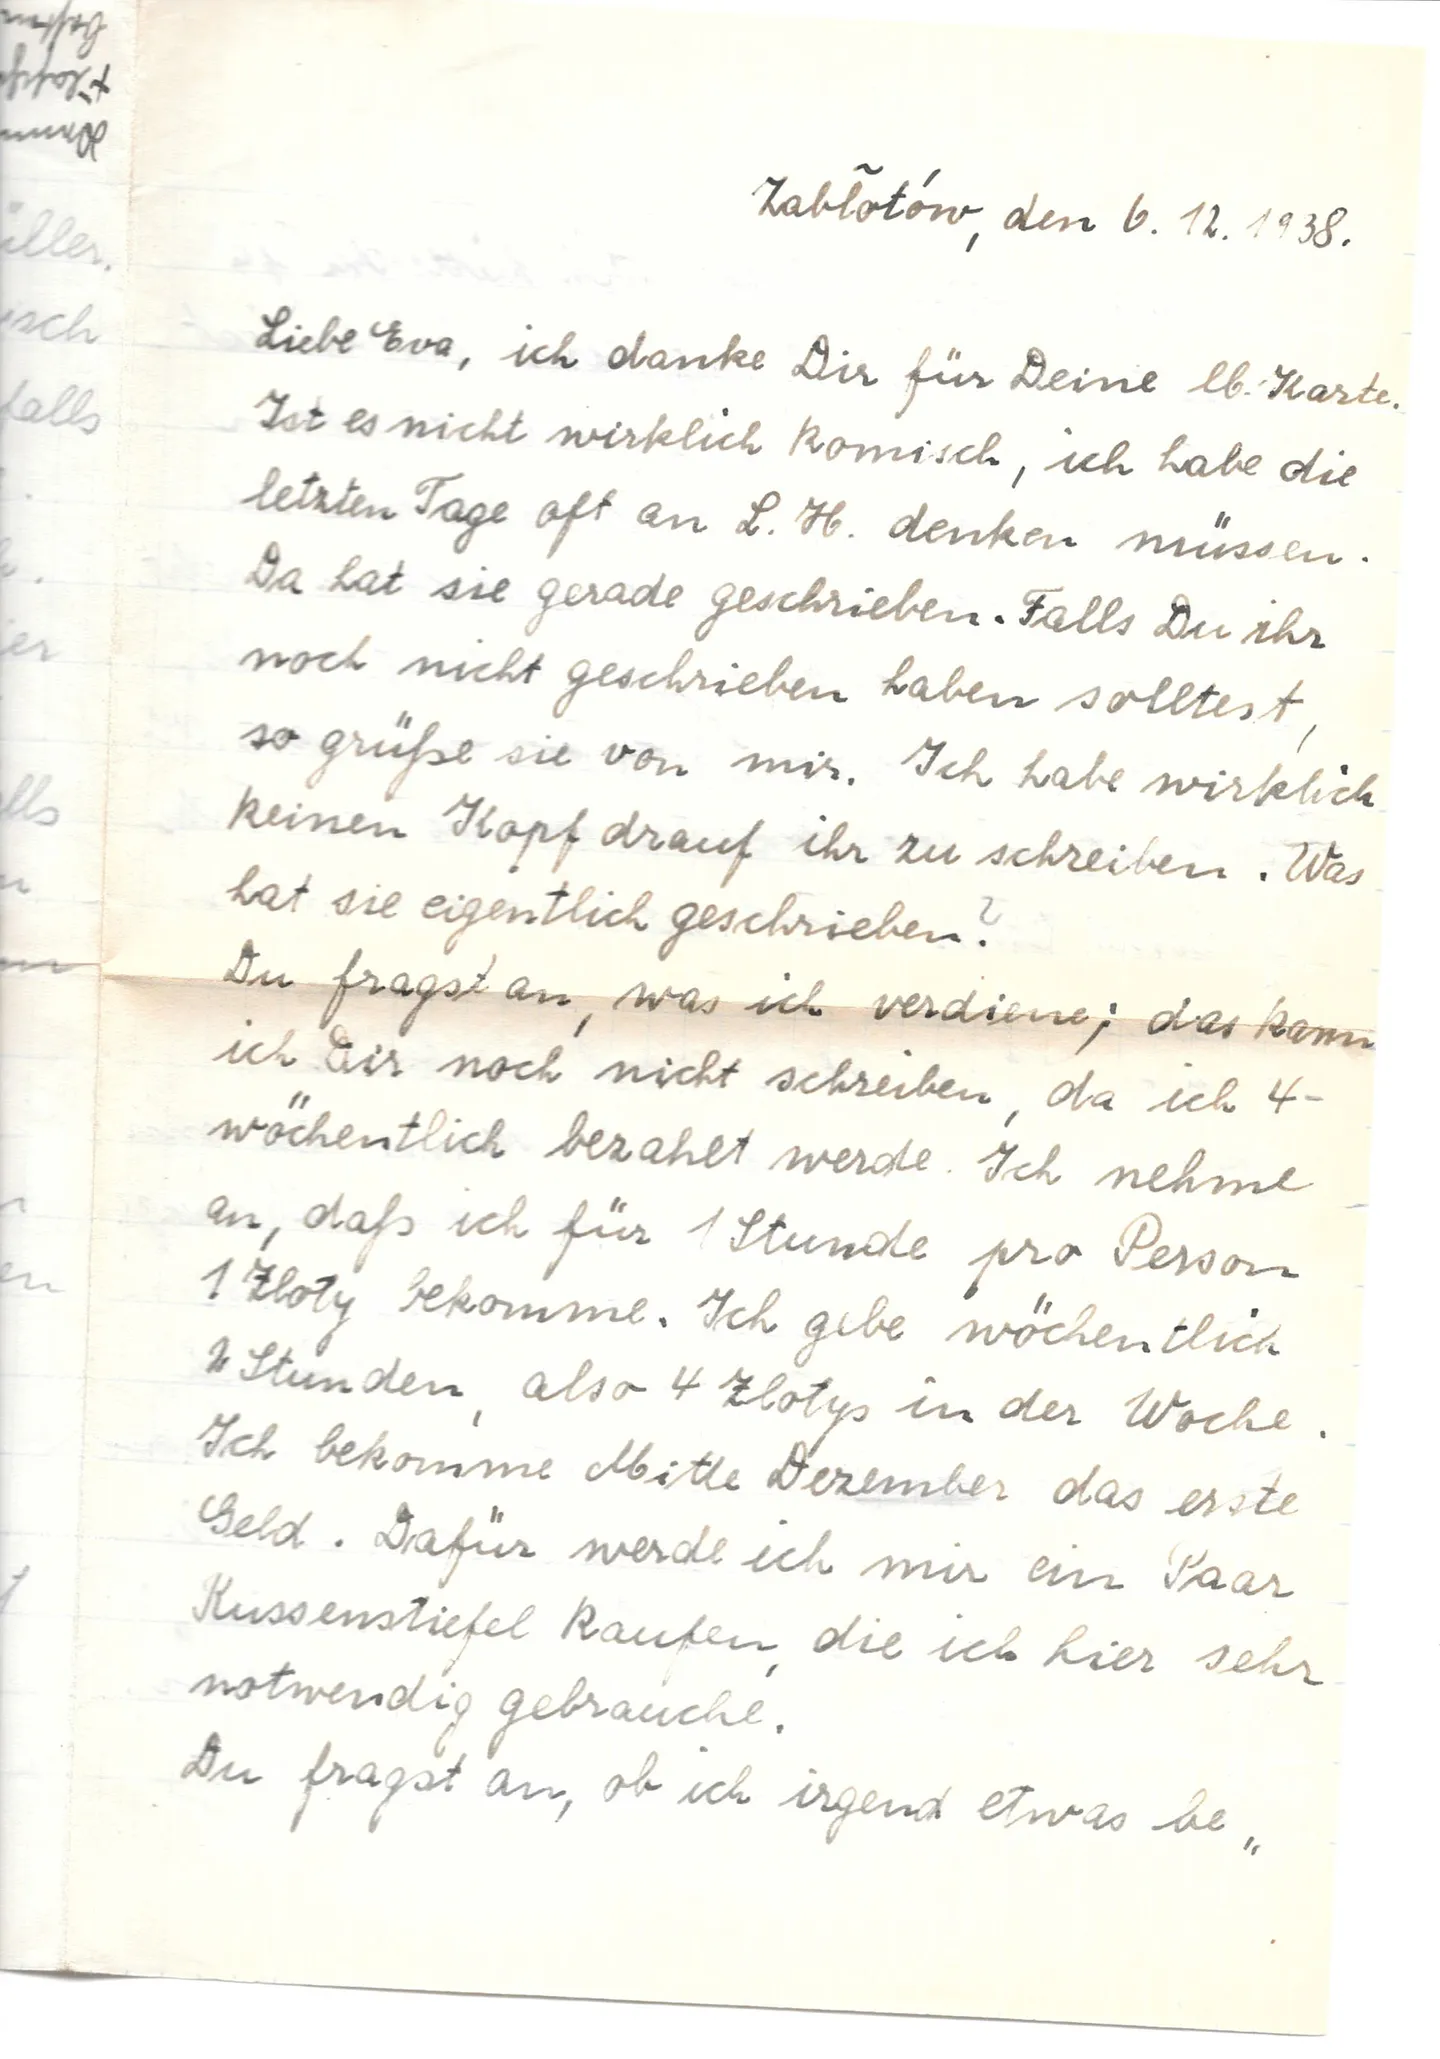 Zabłotów, den 6. 12. 1938.
Liebe Eva, ich danke Dir für Deine lb. Karte.
Ist es nicht wirklich komisch, ich habe die
letzten Tage oft an L. H. denken müssen.
Da hat sie gerade geschrieben. Falls Du ihr
noch nicht geschrieben haben solltest,
so grüße sie von mir. Ich habe wirklich
keinen Kopf drauf ihr zu schreiben. Was
hat sie eigentlich geschrieben?
Du fragst an, was ich verdiene; das kann
ich Dir noch nicht schreiben, da ich 4-
wöchentlich bezahlt werde. Ich nehme
an, daß ich für 1 Stunde pro Person
1 Zloty bekomme. Ich gebe wöchentlich
Stunden, also 4 Zlotys in der Woche.
Ich bekomme Mitte Dezember das erste
Geld. Dafür werde ich mir ein Paar
Russenstiefel kaufen, die ich hier sehr
notwendig gebrauche.
Du fragst an, ob ich irgend etwas be„
üller.
isch
falls
er
lls
en